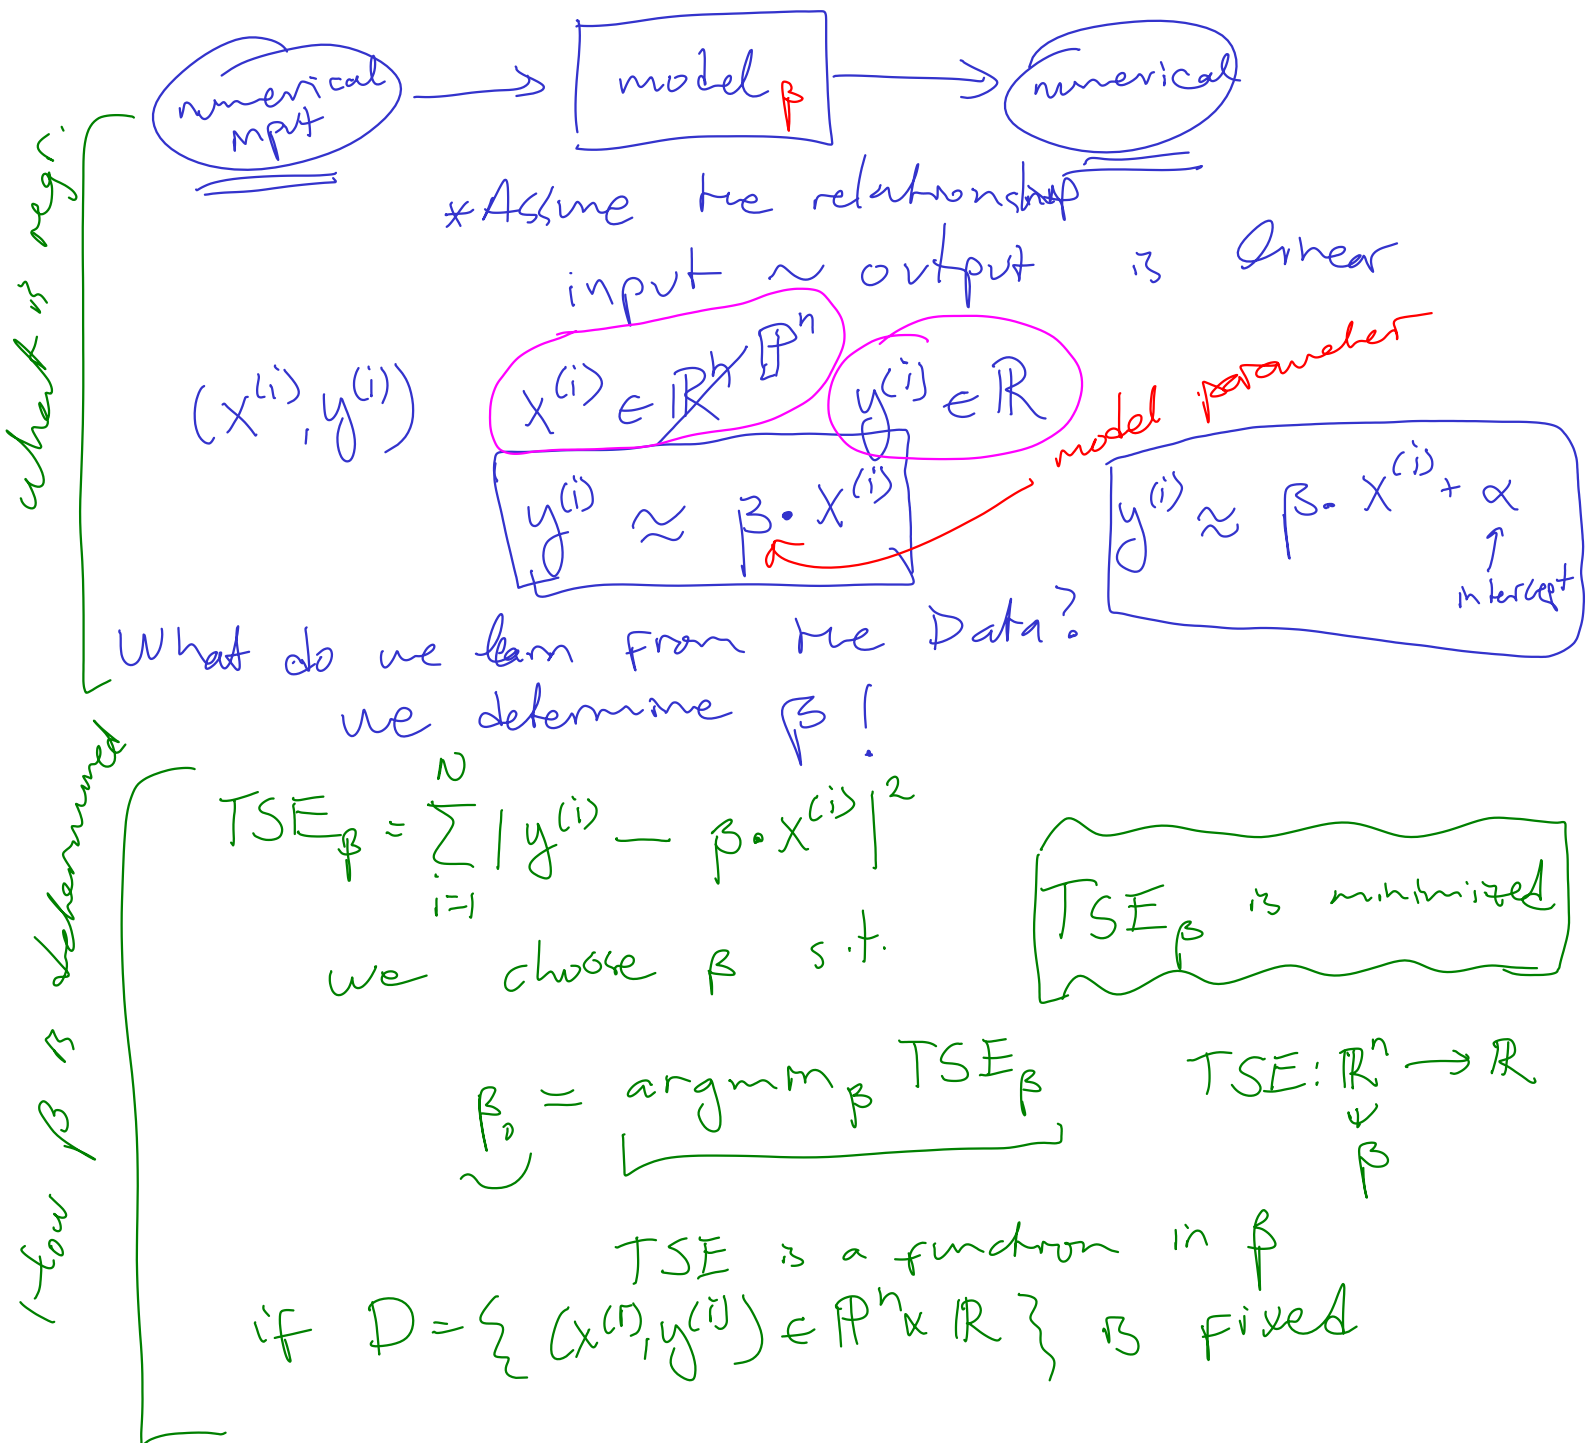 numerical input → model β → numerical
*Assume the relationship
input ~ output is linear
(x^(i), y^(i)) x^(i) ∈ ℝ^n ℙ^n y^(i) ∈ ℝ
model parameter
y^(i) ≈ β · x^(i)
y^(i) ≈ β · x^(i) + α
↑
intercept
What do we learn from the Data?
we determine β!
what is regr.
TSE_β = Σ_{i=1}^{N} | y^(i) — β · x^(i) |^2
we choose β s.t.
TSE_β is minimized
β_0 = argmin_β TSE_β
TSE: ℝ^n → ℝ
β
TSE is a function in β
if D = { (x^(i), y^(i)) ∈ ℙ^n × ℝ } is fixed
How β is determined